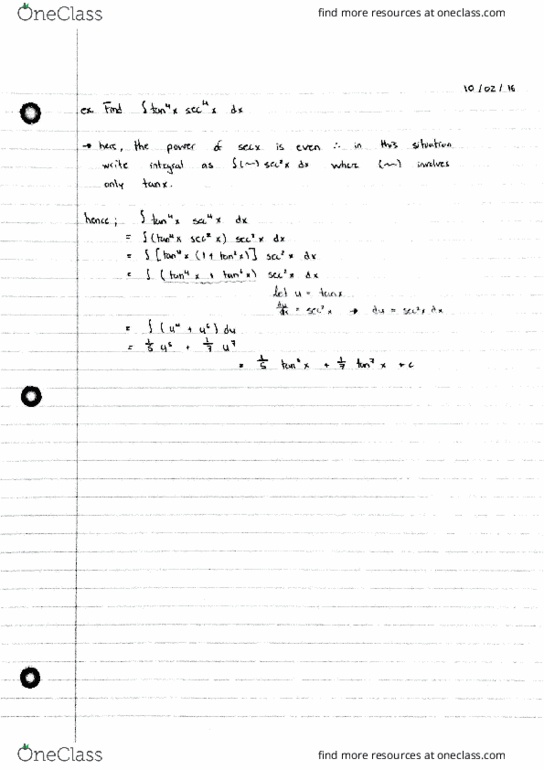 OneClass find more resources at oneclass.com
10/02/16
ex. Find ∫tan⁴x sec⁴x dx
→ here, the power of secx is even ∴ in this situation
write integral as ∫(~) sec²x dx where (~) involves
only tanx.
hence; ∫ tan⁴x sec⁴x dx
= ∫(tan⁴x sec²x) sec²x dx
= ∫[tan⁴x (1 + tan²x)] sec²x dx
= ∫ (tan⁴x + tan⁶x) sec²x dx
Let u = tanx
du/dx = sec²x → du = sec²x dx
= ∫ (u⁴ + u⁶) du
= 1/5 u⁵ + 1/7 u⁷
= 1/5 tan⁵x + 1/7 tan⁷x + c
OneClass find more resources at oneclass.com